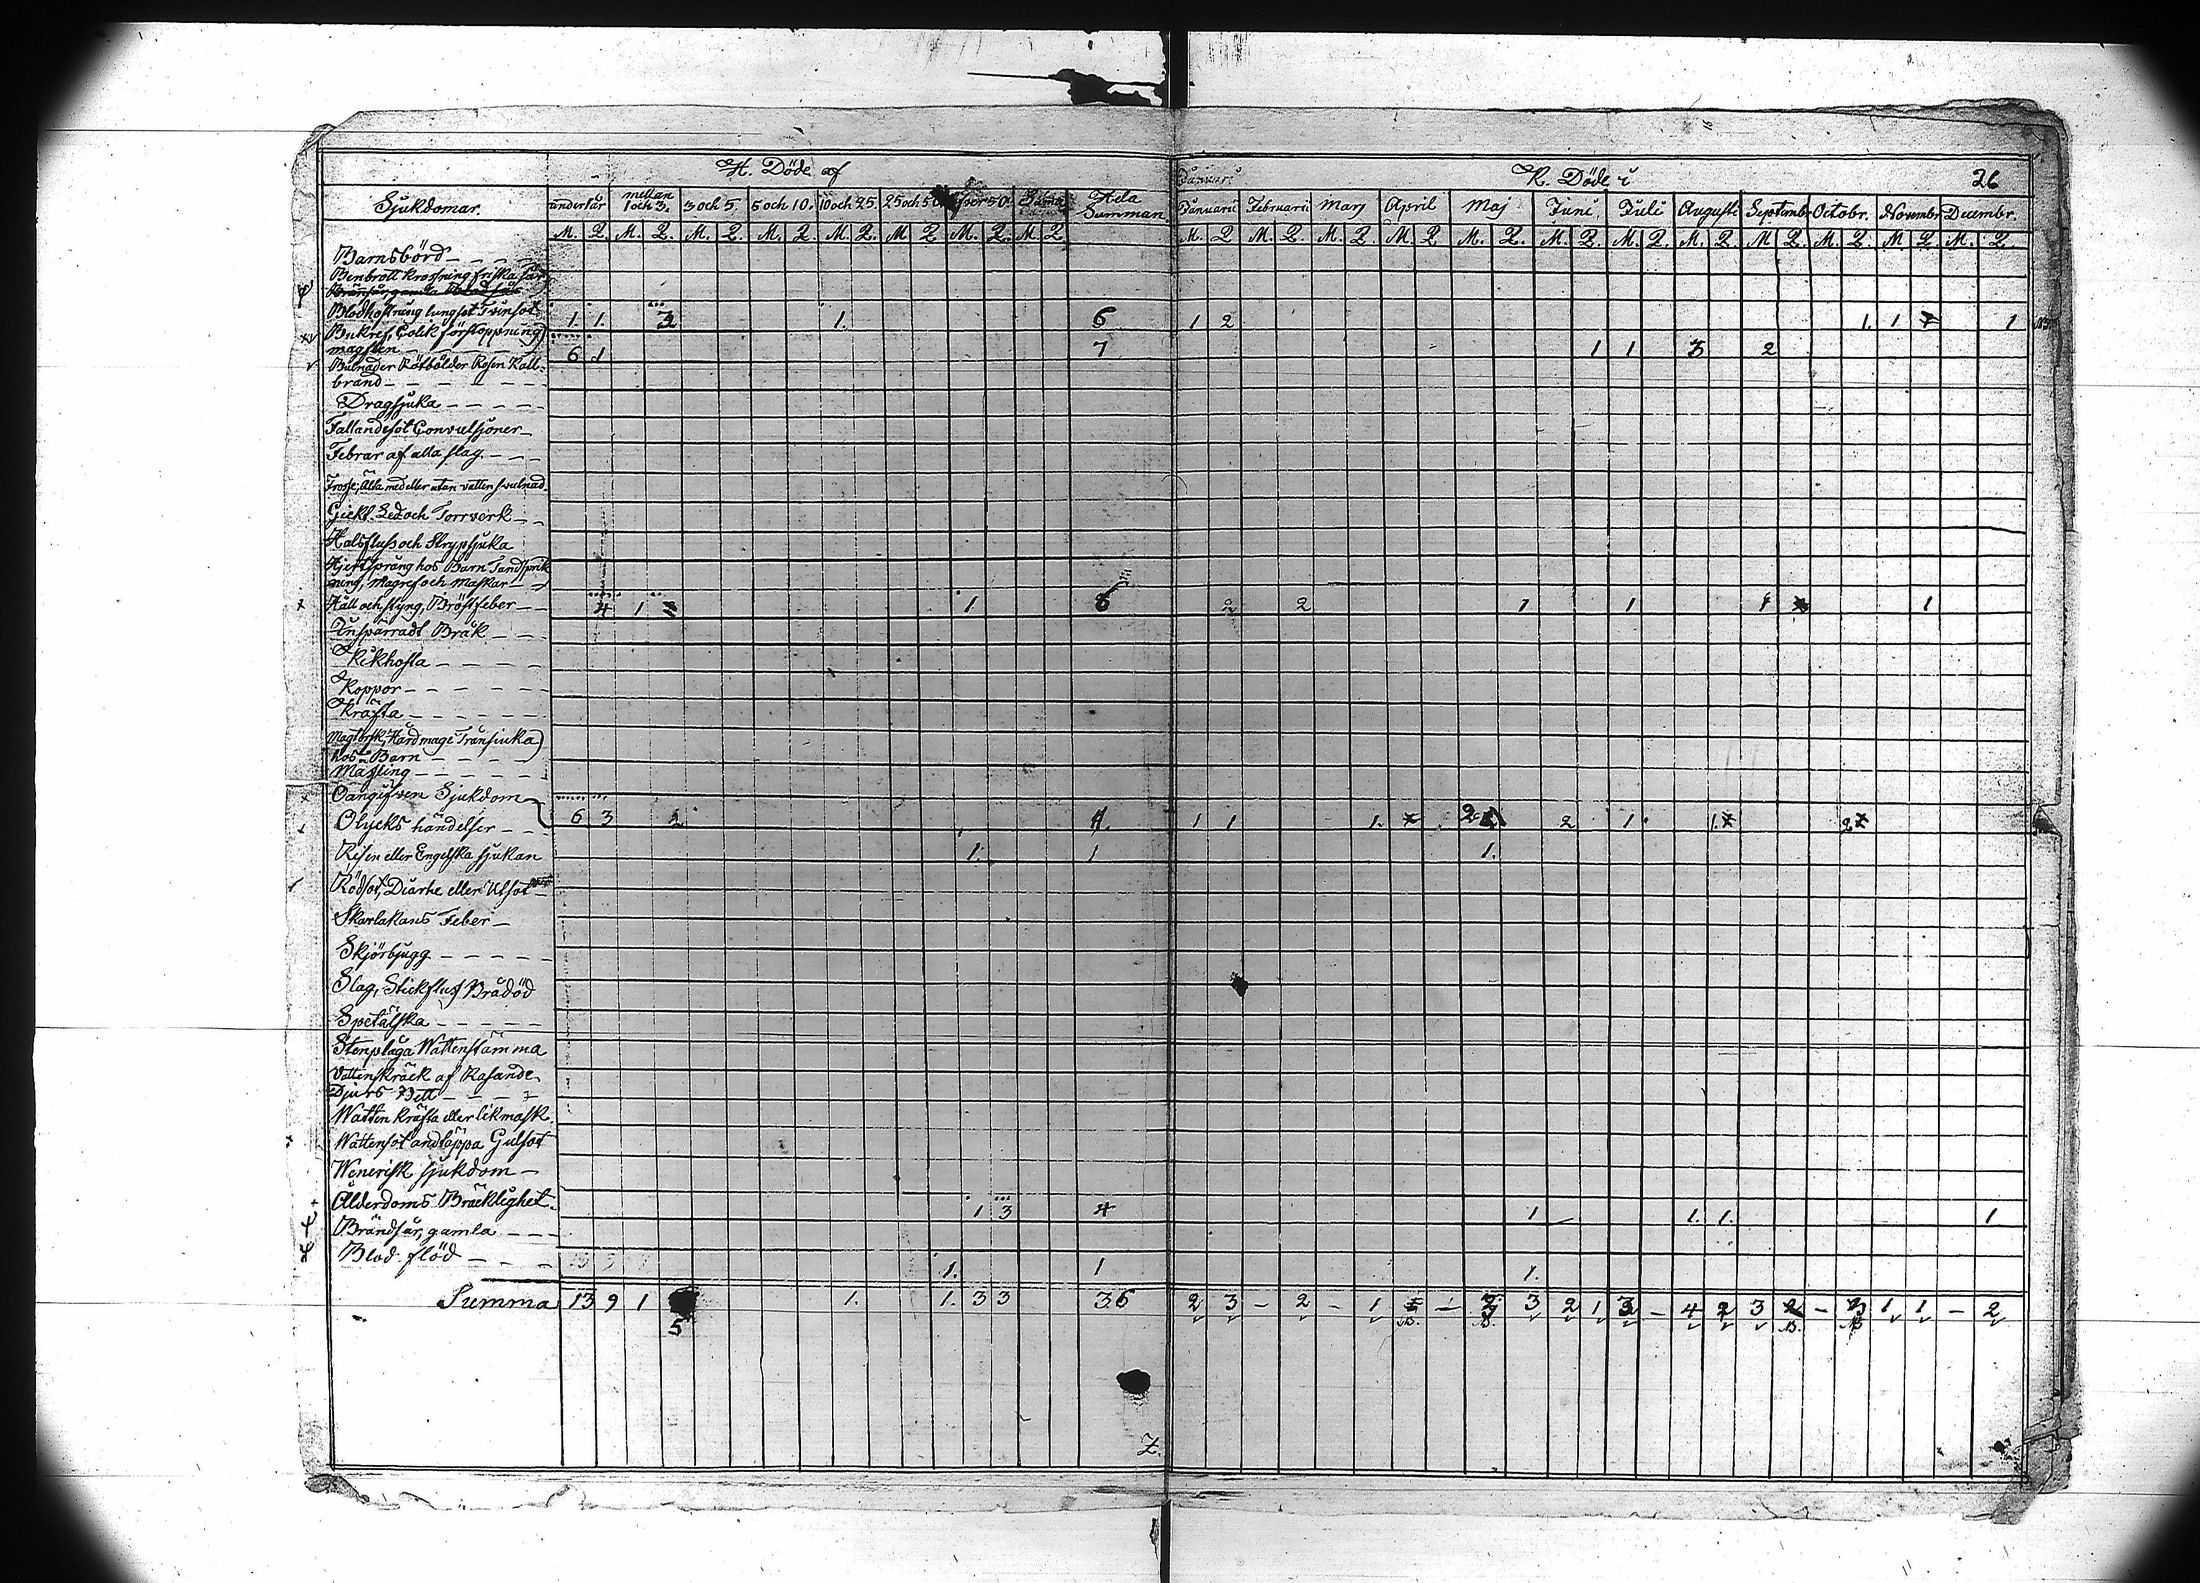 H. Döde af
Sjukdomar.
under 1 år mellan 1 och 3. 3 och 5. 5 och 10. 10 och 25. 25 och 50 öfver 50 Suma Hela Summan
M. Q. M. Q. M. Q. M. Q. M. Q. M Q M. Q. M Q
Barnsbörd
Benbrott krossning friska sår
Blodhostning lungsot Tvinsot 1. 1. 3 1. 6
Bukref, Colik förstoppning
magsten 6 1 7
Bulnader Rötbölder Rosen Kall-
brand
Dragsjuka
Fallandesot Convulsjoner
Febrar af alla slag
Frossa, Älta med eller utan vatten svulnad
Gickt. Led och Torrverk
Halsfluss och Strypsjuka
Hjertsprång hos Barn Tandsprick
ning, Magref och Maskar
Håll och styng, Bröstfeber 4 1 1 8
Inspärradt Bråk
Kikhosta
Koppor
Kräfta
Magtorsk, Hård mage Transjuka
hos Barn
Mässling
Oangifven Sjukdom
Olycks händelser 6 3 2
Risen eller Engelska sjukan 1. 1
Rödsot, Diarhe eller Utsot
Skarlakans Feber
Skjörbjugg
Slag, Stickfluss Brådöd
Spetälska
Stenplåga Wattenstämma
Vattenskräck af Rasande
Djurs Bett
Watten kräfta eller likmask.
Wattensot andtäppa Gulsot
Wenerisk sjukdom
Ålderdoms Bräcklighet. 1 3 4
Brändsår, gamla
Blod-flöd 1. 1
Summa 13 9 1 5 1. 1. 3 3 36
Z.
Januari
K. Döde i
26
Januarii Februarii Marj April Maj Juni Juli Augusti Septembr Octobr. Novembr Decembr.
M. Q M. Q. M. Q. M. Q M. Q. M. Q. M. Q. M. Q. M Q. M. Q. M Q M. Q.
1 2 1. 1 1
1 1 3 2
2 2 1 1 1
1 1 1. 2 2 1. 1. 2
1.
1 1. 1. 1
1.
2 3 – 2 – 1 – 3 2 1 3 – 4 2 3 2 – 1 1 – 2